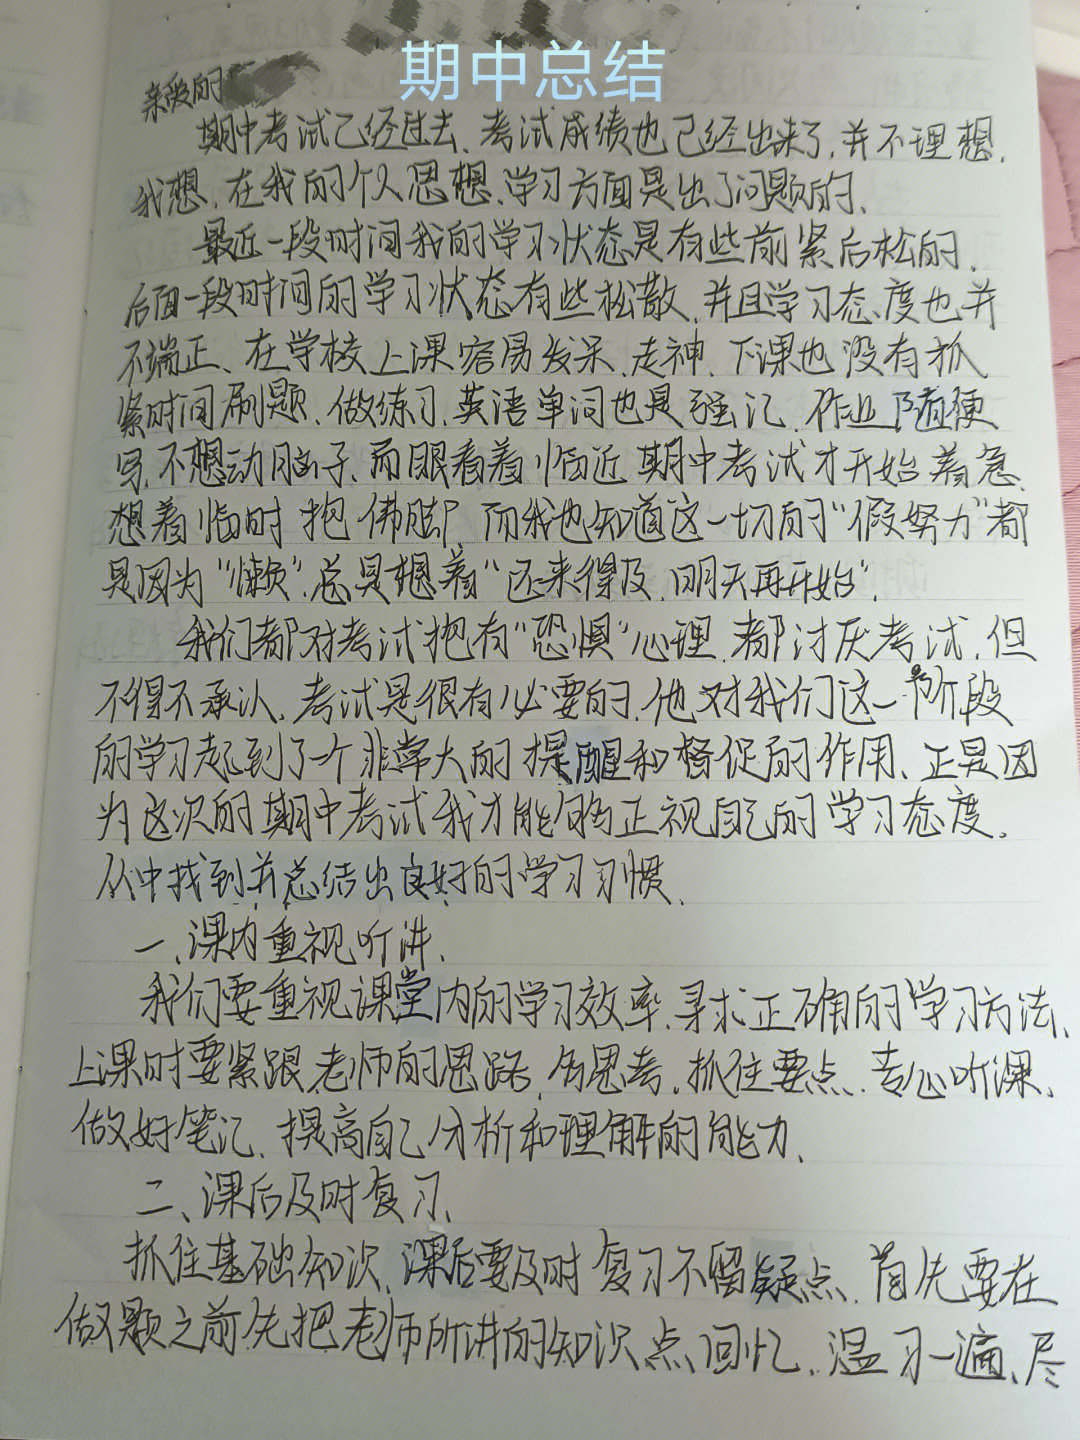 期中总结
亲爱的
期中考试已经过去、考试成绩也已经出来了,并不理想.
我想、在我的个人思想、学习方面是出了问题的、
最近一段时间我的学习状态是有些前紧后松的、
后面一段时间的学习状态有些松散、并且学习态度也并
不端正、在学校上课容易发呆、走神、下课也没有抓
紧时间刷题、做练习、英语单词也是强记、作业随便
写、不想动脑子、而眼看着临近期中考试才开始着急、
想着临时抱佛脚、而我也知道这一切的"假努力"都
是因为"懒"、总是想着"还来得及、明天再开始"、
我们都对考试抱有"恐惧"心理、都讨厌考试、但
不得不承认、考试是很有必要的、他对我们这一阶段
的学习起到了一个非常大的提醒和督促的作用、正是因
为这次的期中考试我才能够正视自己的学习态度、
从中找到并总结出良好的学习习惯、
一、课内重视听讲、
我们要重视课堂内的学习效率、寻求正确的学习方法、
上课时要紧跟老师的思路、多思考、抓住要点、专心听课、
做好笔记、提高自己分析和理解的能力、
二、课后及时复习、
抓住基础知次、课后要及时复习不留疑点、首先要在
做题之前先把老师所讲的知识点回忆、温习一遍、尽